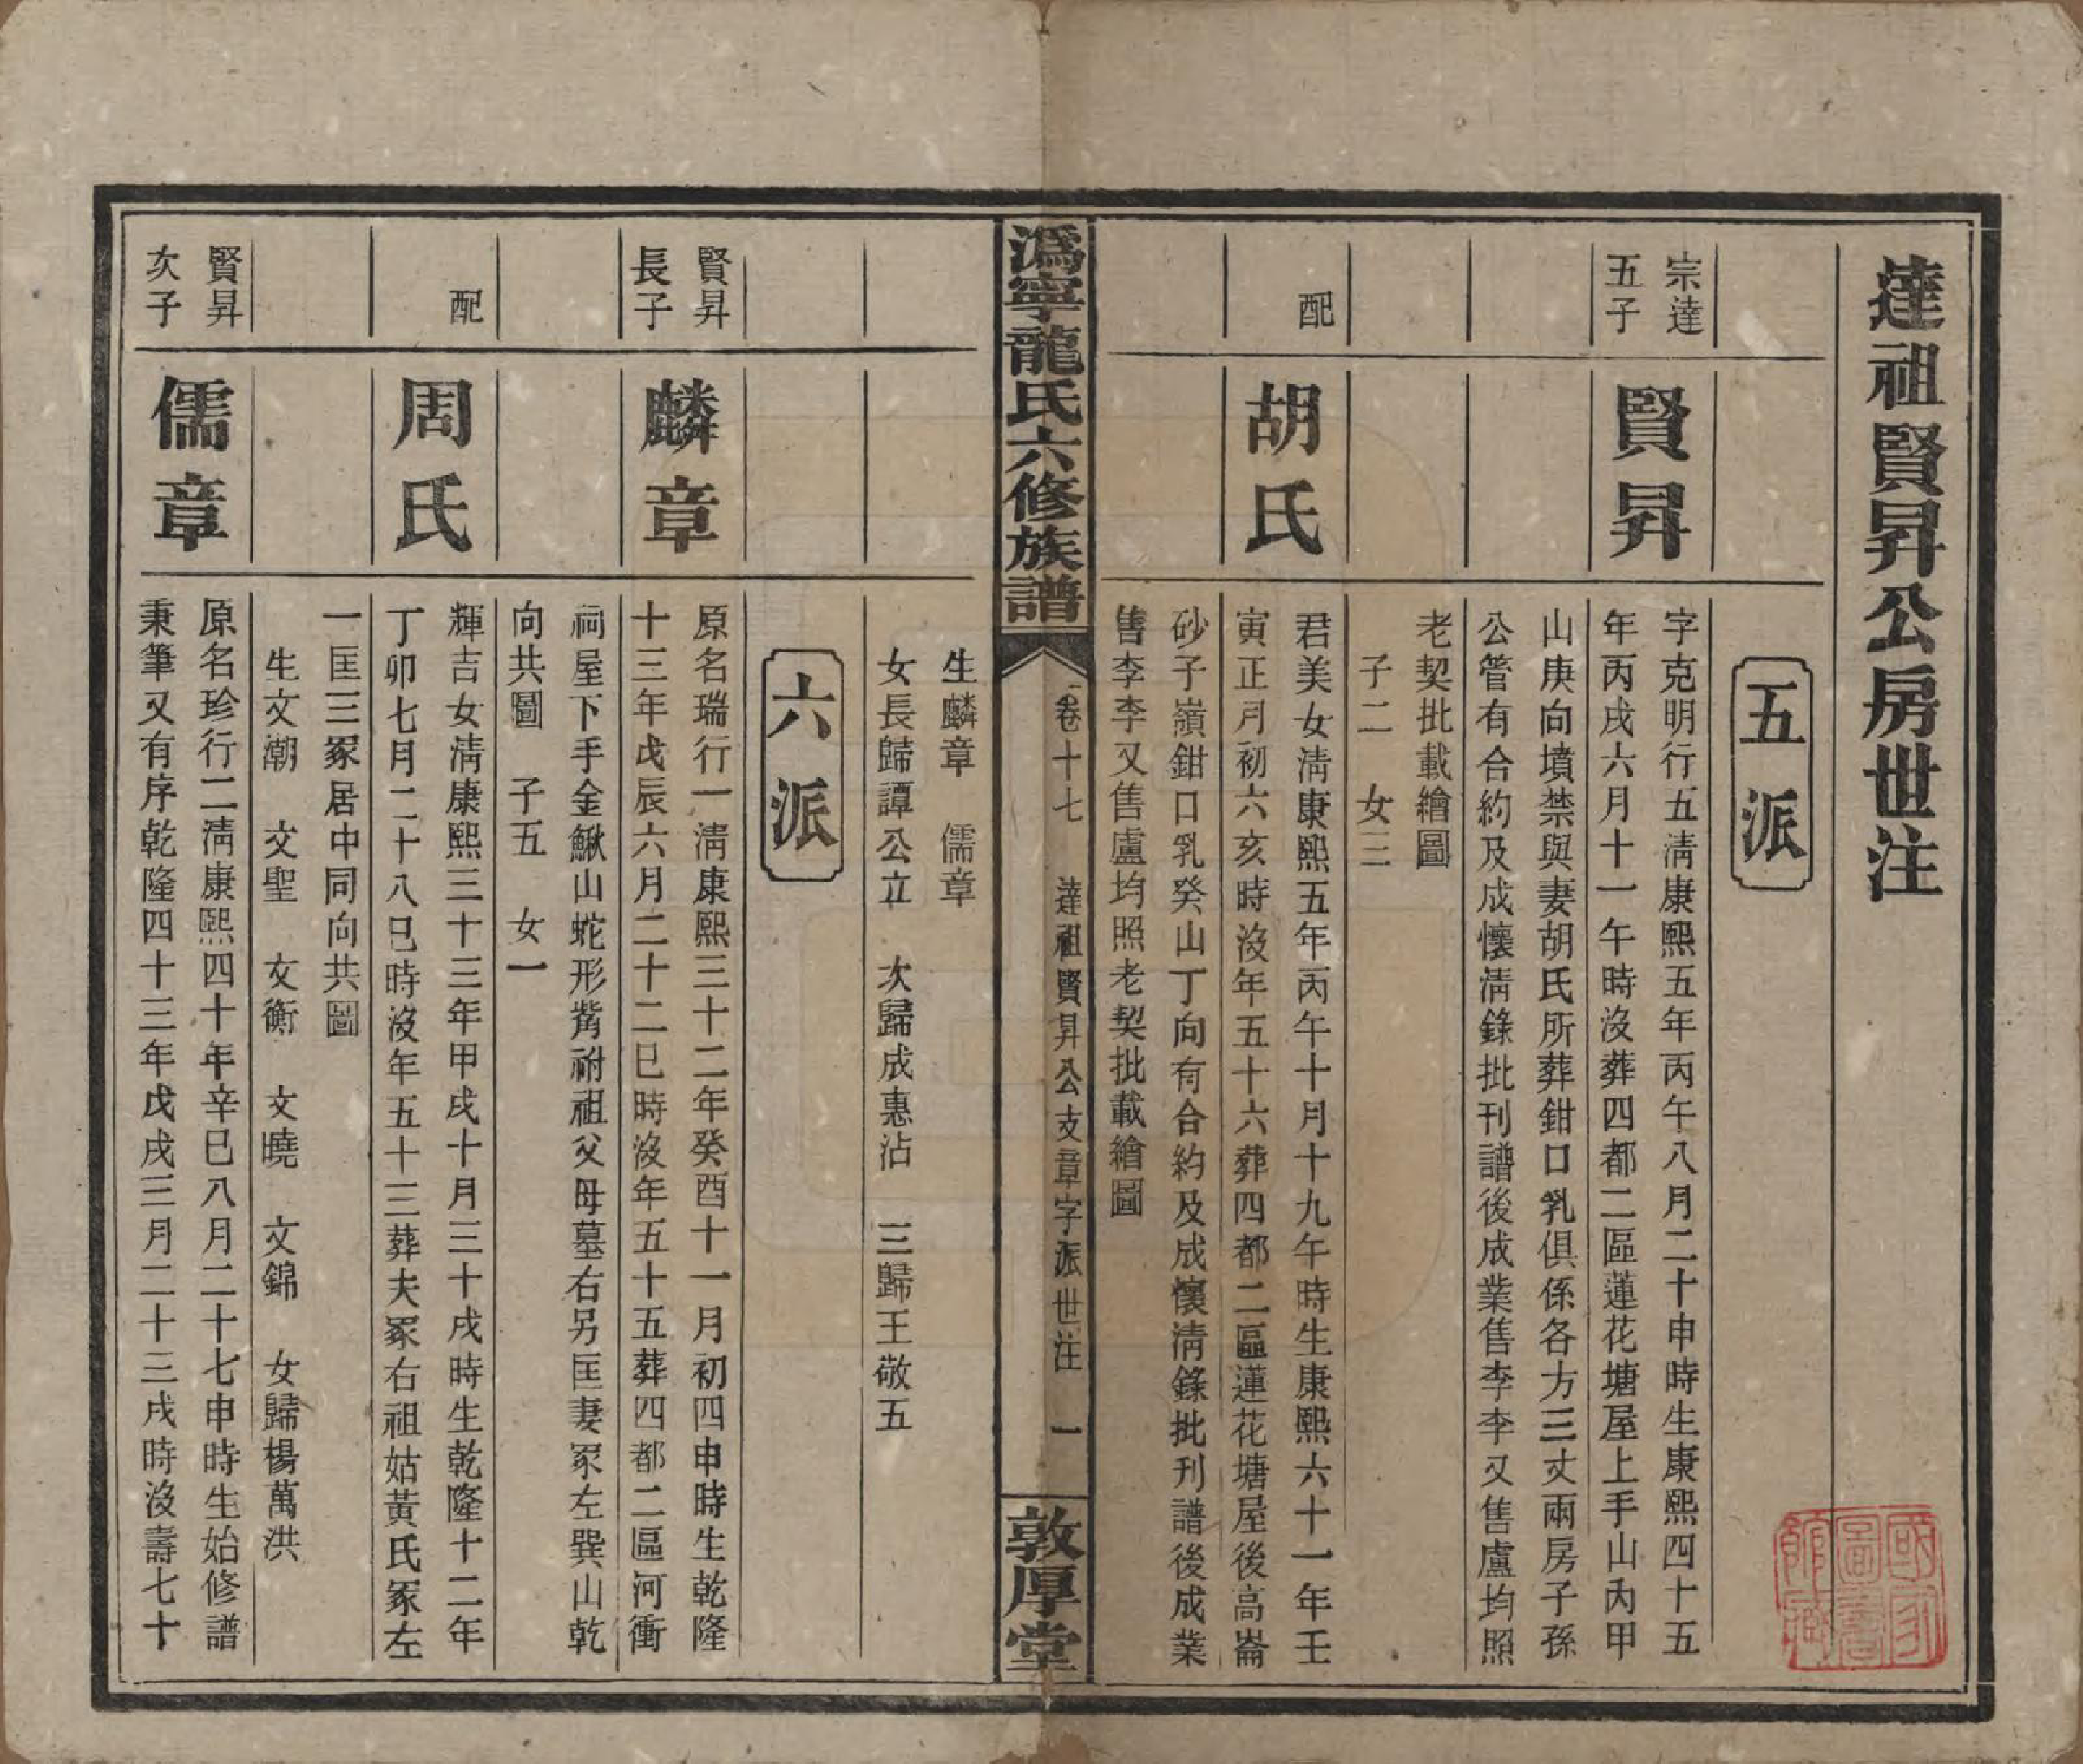 達祖賢昇公房世注
五派
宗達
五子
賢昇
字克明行五淸康熙五年丙午八月二十申時生康熙四十五
年丙戌六月十一午時沒葬四都二區蓮花塘屋上手山內甲
山庚向墳禁與妻胡氏所葬鉗口乳俱係各方三丈兩房子孫
公管有合約及成懷淸錄批刊譜後成業售李李又售盧均照
老契批載繪圖
子二 女三
配
胡氏
君美女淸康熙五年丙午十月十九午時生康熙六十一年壬
寅正月初六亥時沒年五十六葬四都二區蓮花塘屋後高崙
砂子嶺鉗口乳癸山丁向有合約及成懷淸錄批刊譜後成業
售李李又售盧均照老契批載繪圖
溈寧龍氏六修族譜
卷十七 達祖賢昇公支章字派世注 一
敦厚堂
生麟章 儒章
女長歸譚公立 次歸成惠沾 三歸王敬五
六派
賢昇
長子
麟章
原名瑞行一淸康熙三十二年癸酉十一月初四申時生乾隆
十三年戊辰六月二十二巳時沒年五十五葬四都二區河衝
祠屋下手金鰍山蛇形觜祔祖父母墓右另匡妻冢左巽山乾
向共圖 子五 女一
配
周氏
輝吉女淸康熙三十三年甲戌十月三十戌時生乾隆十二年
丁卯七月二十八巳時沒年五十三葬夫冢右祖姑黃氏冢左
一匡三冢居中同向共圖
生文潮 文聖 文衡 文曉 文錦 女歸楊萬洪
賢昇
次子
儒章
原名珍行二淸康熙四十年辛巳八月二十七申時生始修譜
秉筆又有序乾隆四十三年戊戌三月二十三戌時沒壽七十
國家
圖書
館藏